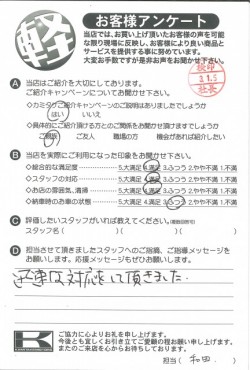 軽
お客様アンケート
当店では、お買い上げ頂いたお客様の声を可能
な限り現場に反映し、お客様により良い商品と
サービスを提供する事に努めています。
大変お手数ですが是非お声をお聞かせ下さい。
検印
社長
A 当店はご紹介を大切にしております。
ご紹介キャンペーンについてお聞かせ下さい。
◇カミタケご紹介キャンペーンのご説明はありましたでしょうか
はい いいえ
◇具体的にご紹介頂ける方とのご関係をお聞かせ頂けますでしょうか
ご親戚 ご友人 職場の方 機会があれば紹介したい
B 当店を実際ご利用になった印象をお聞かせ下さい。
◇総合的な満足度 5.大満足 4.満足 3.ふつう 2.やや不満 1.不満
◇スタッフの対応 5.大満足 4.満足 3.ふつう 2.やや不満 1.不満
◇お店の雰囲気、清掃 5.大満足 4.満足 3.ふつう 2.やや不満 1.不満
◇納車時のお車の状態 5.大満足 4.満足 3.ふつう 2.やや不満 1.不満
C 評価したいスタッフがいれば教えてください。(複数回答可)
スタッフ名( )( )( )
D 担当させて頂きましたスタッフへのご指摘、ご指導メッセージを
お願いします。応援メッセージもぜひお願いします。
迅速な対応をして頂きました。
K
ご協力に心よりお礼を申し上げます。
今後とも宜しくお引き立てご愛顧の程お願い申し上げます。
またのご来店を心からお待ちしております。
担当( 和田 )